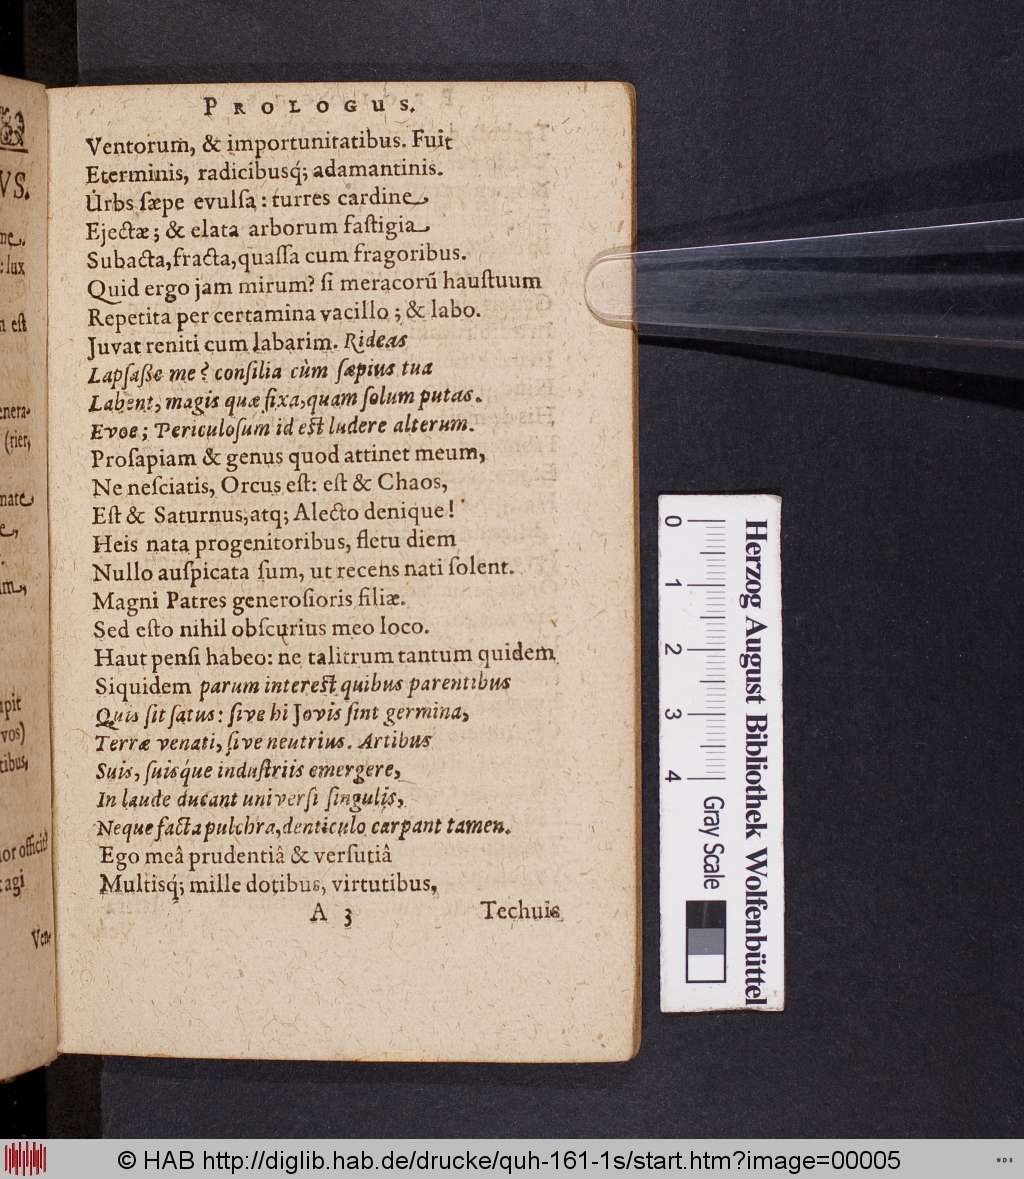 PROLOGUS.
Ventorum, & importunitatibus. Fuit
Eterminis, radicibusq́; adamantinis.
Urbs ſæpe evulſa: turres cardine
Ejectæ; & elata arborum faſtigia
Subacta, fracta, quaſſa cum fragoribus.
Quid ergo jam mirum? ſi meracorū hauſtuum
Repetita per certamina vacillo; & labo.
Juvat reniti cum labarim. Rideas
Lapſaße me? conſilia cùm ſæpius tua
Labent, magis quæ fixa, quam ſolum putas.
Evoe; Periculoſum id eſt ludere alterum.
Proſapiam & genus quod attinet meum,
Ne neſciatis, Orcus eſt: eſt & Chaos,
Eſt & Saturnus, atq; Alecto denique!
Heis nata progenitoribus, fletu diem
Nullo auſpicata ſum, ut recens nati ſolent.
Magni Patres generoſioris filiæ.
Sed eſto nihil obſcurius meo loco.
Haut penſi habeo: ne talitrum tantum quidem
Siquidem parum intereſt quibus parentibus
Quis ſit ſatus: ſive hi Jovis ſint germina,
Terræ venati, ſive neutrius. Artibus
Suis, ſuisq́ue induſtriis emergere,
In laude ducant univerſi ſingulis,
Neque facta pulchra, denticulo carpant tamen.
Ego meâ prudentiâ & verſutiâ
Multisq́; mille dotibus, virtutibus,
A 3 Techuis
VS.
: lux
eſt
enera-
(rier,
vos)
tibus,
agi
Ven-
0 1 2 3 4
Herzog August Bibliothek Wolfenbüttel
Gray Scale
© HAB http://diglib.hab.de/drucke/quh-161-1s/start.htm?image=00005